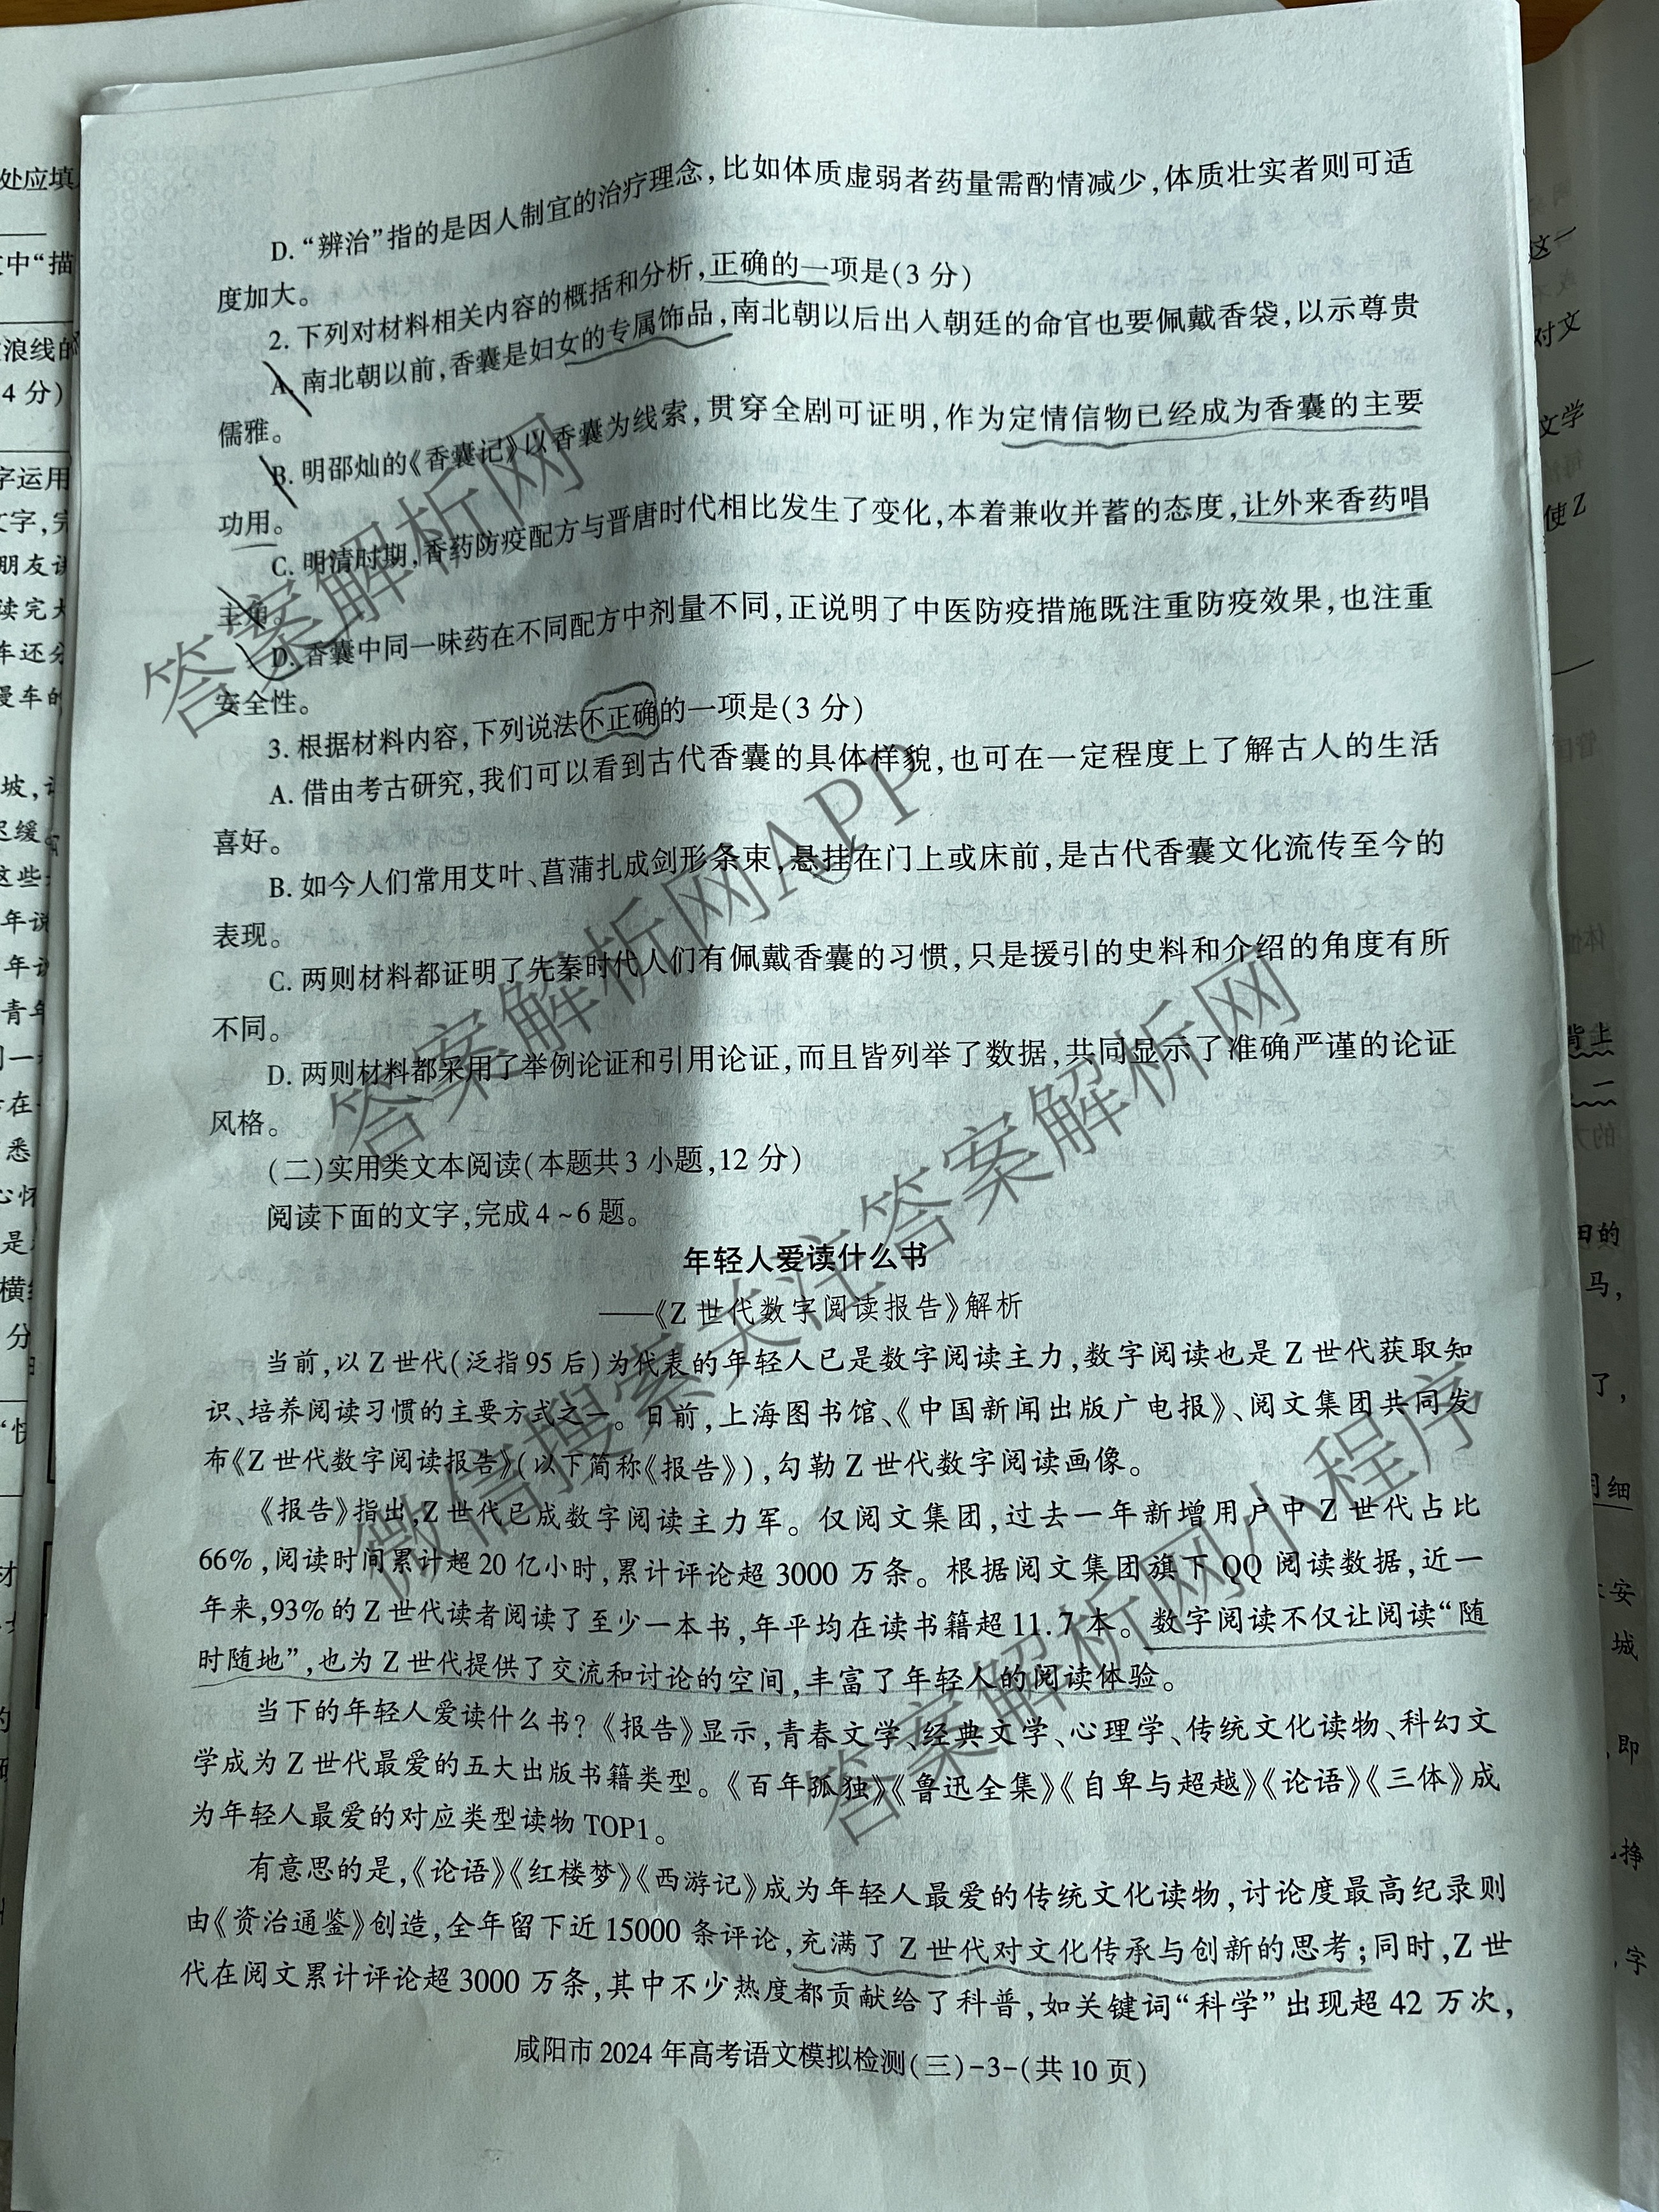 D. “辨治”指的是因人制宜的治疗理念,比如体质虚弱者药量需酌情减少,体质壮实者则可适
度加大。
2. 下列对材料相关内容的概括和分析,正确的一项是(3 分)
A. 南北朝以前,香囊是妇女的专属饰品,南北朝以后出入朝廷的命官也要佩戴香袋,以示尊贵
儒雅。
B. 明邵灿的《香囊记》以香囊为线索,贯穿全剧可证明,作为定情信物已经成为香囊的主要
功用。
C. 明清时期,香药防疫配方与晋唐时代相比发生了变化,本着兼收并蓄的态度,让外来香药唱
主角。
D. 香囊中同一味药在不同配方中剂量不同,正说明了中医防疫措施既注重防疫效果,也注重
安全性。
3. 根据材料内容,下列说法不正确的一项是(3 分)
A. 借由考古研究,我们可以看到古代香囊的具体样貌,也可在一定程度上了解古人的生活
喜好。
B. 如今人们常用艾叶、菖蒲扎成剑形条束,悬挂在门上或床前,是古代香囊文化流传至今的
表现。
C. 两则材料都证明了先秦时代人们有佩戴香囊的习惯,只是援引的史料和介绍的角度有所
不同。
D. 两则材料都采用了举例论证和引用论证,而且皆列举了数据,共同显示了准确严谨的论证
风格。
(二)实用类文本阅读(本题共 3 小题,12 分)
阅读下面的文字,完成 4~6 题。
年轻人爱读什么书
——《Z 世代数字阅读报告》解析
当前,以 Z 世代(泛指 95 后)为代表的年轻人已是数字阅读主力,数字阅读也是 Z 世代获取知
识、培养阅读习惯的主要方式之一。日前,上海图书馆、《中国新闻出版广电报》、阅文集团共同发
布《Z 世代数字阅读报告》(以下简称《报告》),勾勒 Z 世代数字阅读画像。
《报告》指出,Z 世代已成数字阅读主力军。仅阅文集团,过去一年新增用户中 Z 世代占比
66%,阅读时间累计超 20 亿小时,累计评论超 3000 万条。根据阅文集团旗下 QQ 阅读数据,近一
年来,93%的 Z 世代读者阅读了至少一本书,年平均在读书籍超 11.7 本。数字阅读不仅让阅读“随
时随地”,也为 Z 世代提供了交流和讨论的空间,丰富了年轻人的阅读体验。
当下的年轻人爱读什么书?《报告》显示,青春文学、经典文学、心理学、传统文化读物、科幻文
学成为 Z 世代最爱的五大出版书籍类型。《百年孤独》《鲁迅全集》《自卑与超越》《论语》《三体》成
为年轻人最爱的对应类型读物 TOP1。
有意思的是,《论语》《红楼梦》《西游记》成为年轻人最爱的传统文化读物,讨论度最高纪录则
由《资治通鉴》创造,全年留下近 15000 条评论,充满了 Z 世代对文化传承与创新的思考;同时,Z 世
代在阅文累计评论超 3000 万条,其中不少热度都贡献给了科普,如关键词“科学”出现超 42 万次,
咸阳市 2024 年高考语文模拟检测(三)-3-(共 10 页)
答案解析网
答案解析网APP
微信搜索关注答案解析网
答案解析网小程序